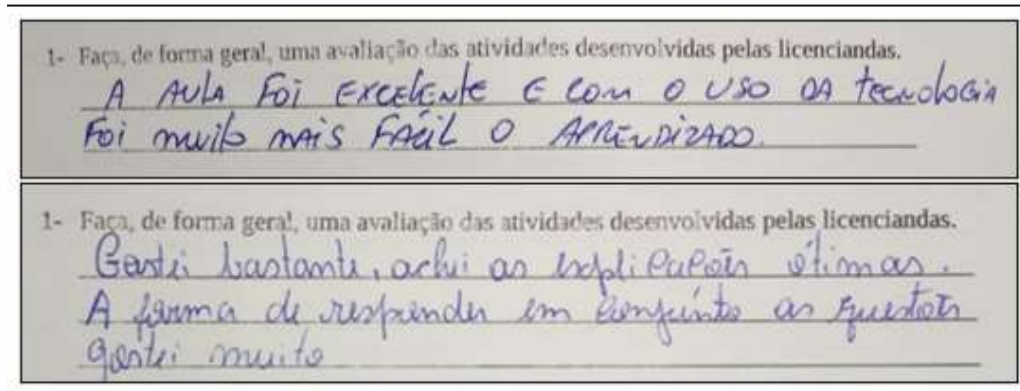 1- Faça, de forma geral, uma avaliação das atividades desenvolvidas pelas licenciandas.
A AULA FOI EXCELENTE E COM O USO DA TECNOLOGIA
FOI MUITO MAIS FÁCIL O APRENDIZADO.
1- Faça, de forma geral, uma avaliação das atividades desenvolvidas pelas licenciandas.
Gostei bastante, achei as explicações ótimas.
A forma de responder em conjunto as questões
gostei muito